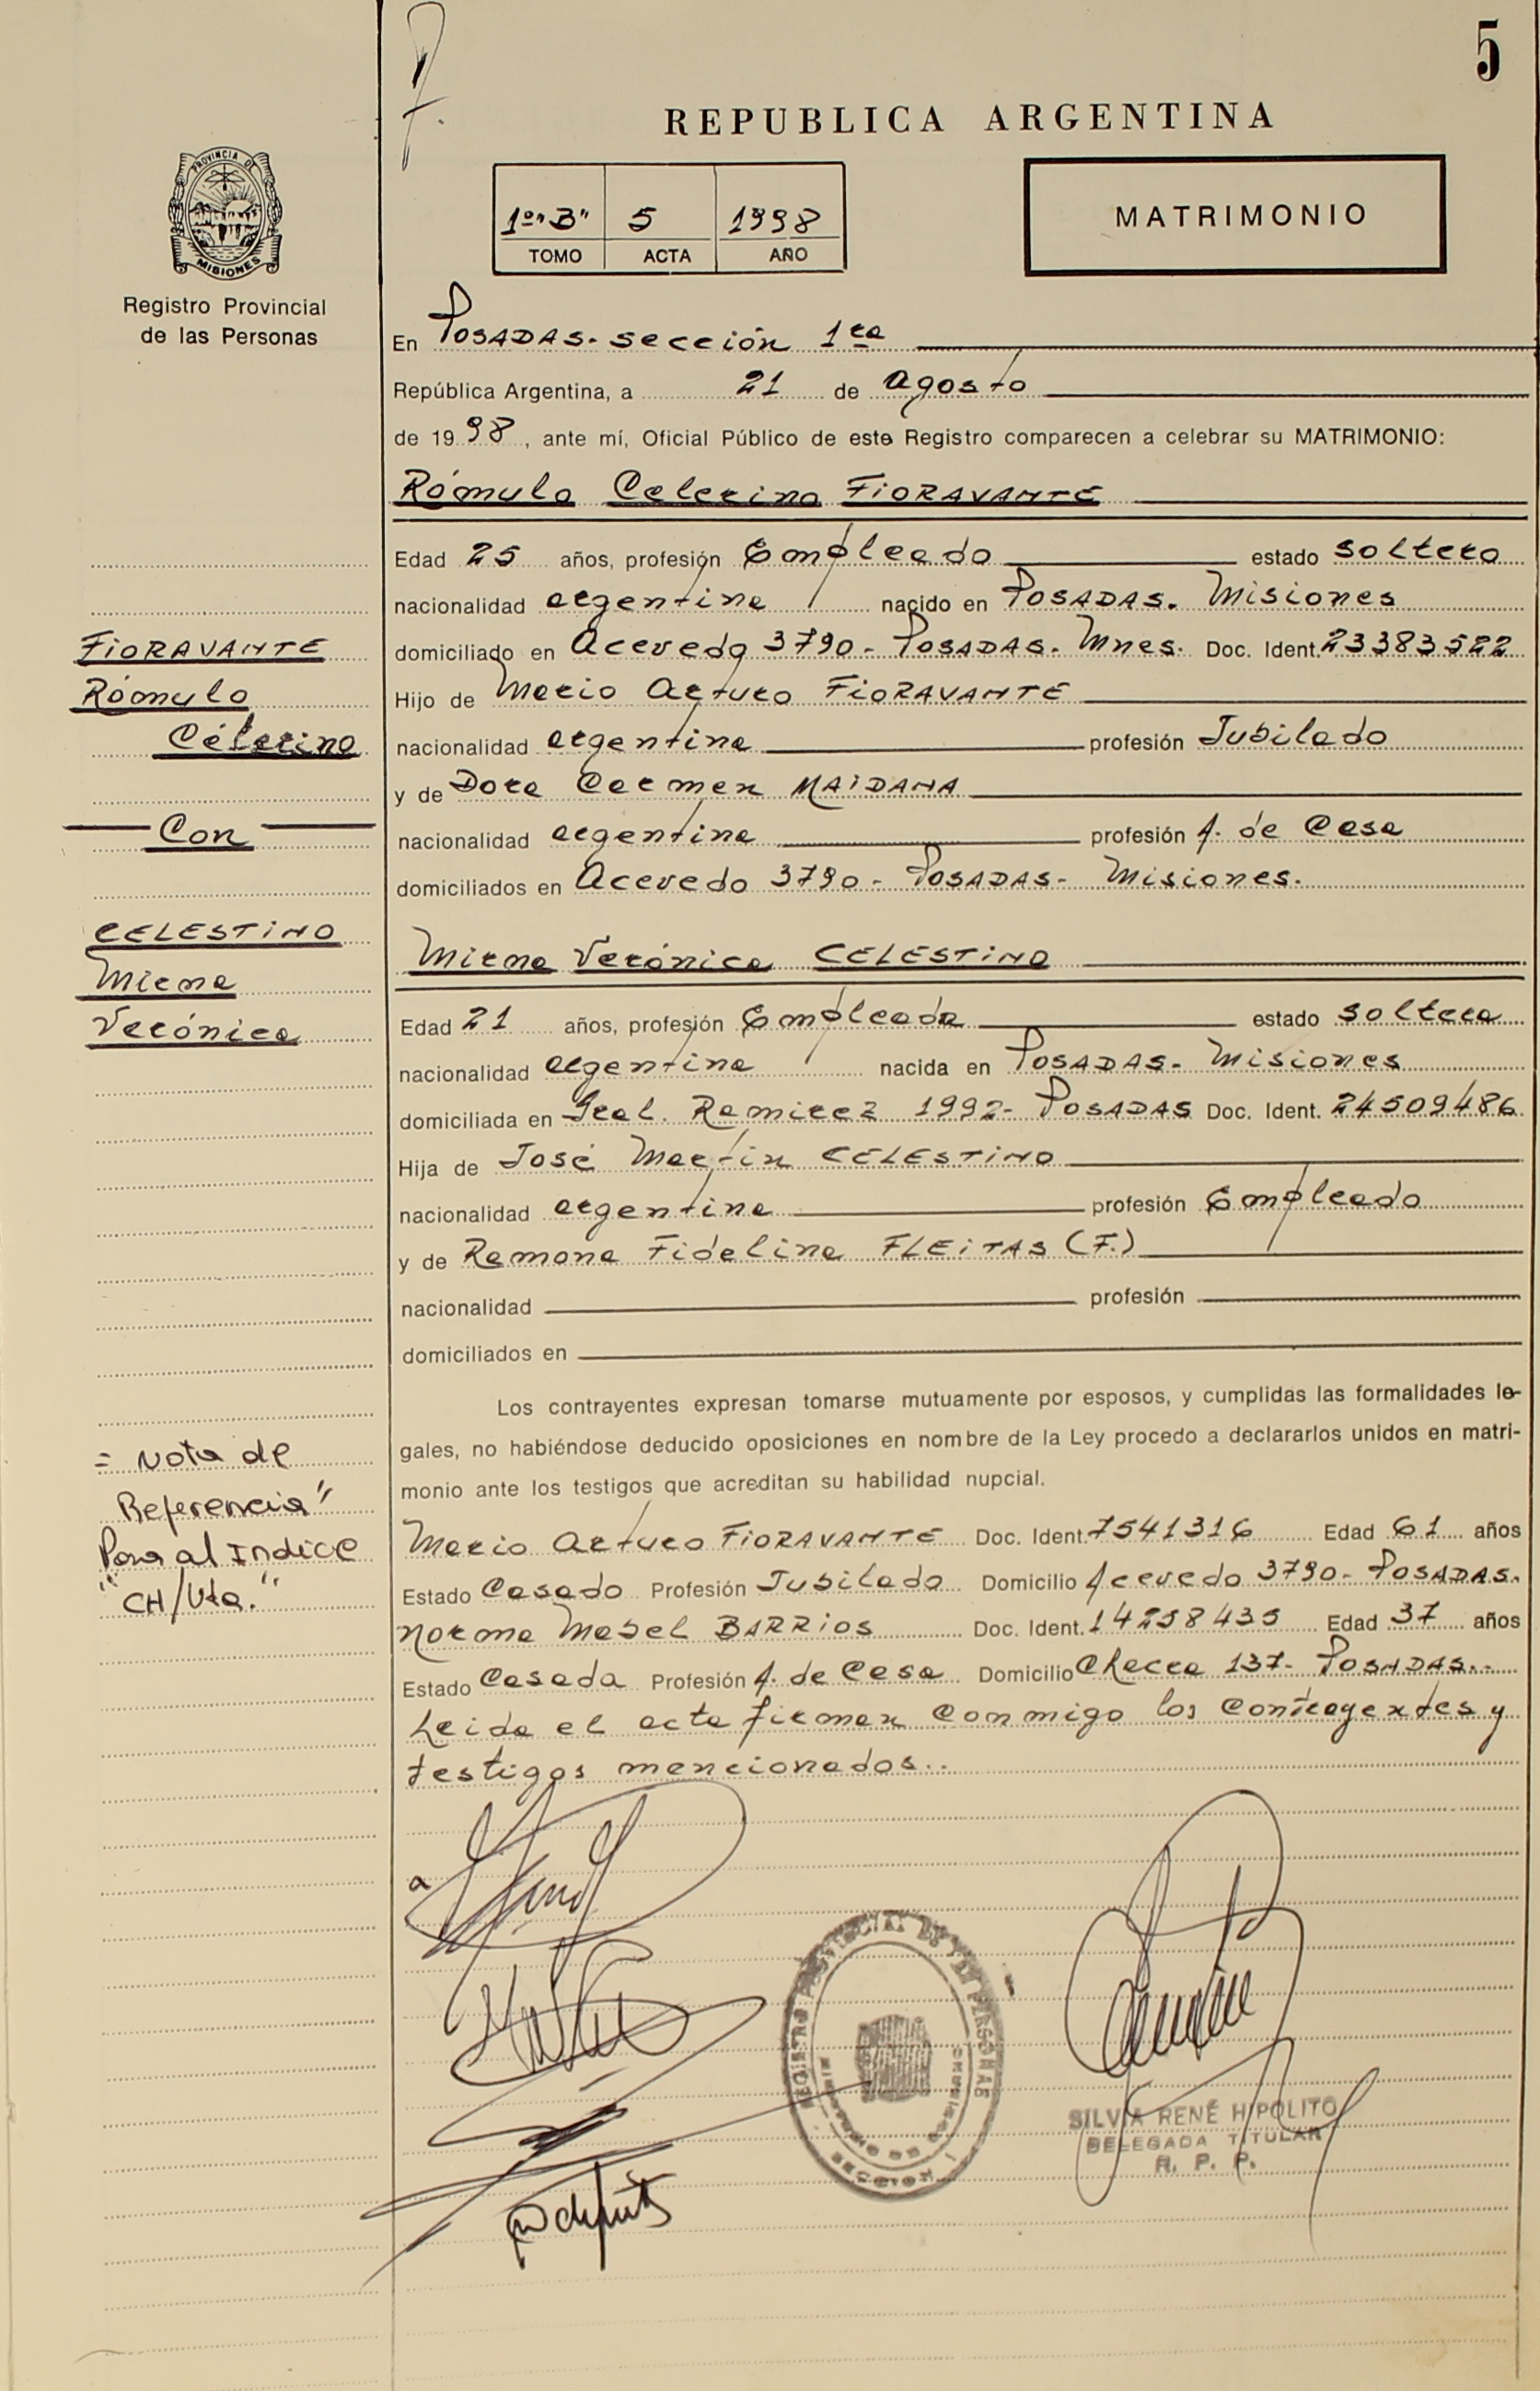 5
REPUBLICA ARGENTINA
1º "B" 5 1998
TOMO ACTA AÑO
MATRIMONIO
PROVINCIA DE
MISIONES
Registro Provincial
de las Personas
En POSADAS. sección 1ra
República Argentina, a 21 de agosto
de 1998, ante mí, Oficial Público de este Registro comparecen a celebrar su MATRIMONIO:
Rómulo Celerino FIORAVANTE
Edad 25 años, profesión Empleado estado soltero
nacionalidad argentina nacido en POSADAS. Misiones
domiciliado en Acevedo 3790- POSADAS. Mnes. Doc. Ident. 23383522
Hijo de Mario Arturo FIORAVANTE
nacionalidad argentina profesión Jubilado
y de Dora Carmen MAIDANA
nacionalidad argentina profesión A. de Casa
domiciliados en Acevedo 3790- POSADAS- Misiones.
Mirna Verónica CELESTINO
Edad 21 años, profesión Empleada estado soltera
nacionalidad argentina nacida en POSADAS- Misiones
domiciliada en Gral. Ramirez 1992- POSADAS Doc. Ident. 24509486
Hija de José Martin CELESTINO
nacionalidad argentina profesión Empleado
y de Ramona Fidelina FLEITAS (F.)
nacionalidad profesión
domiciliados en
Los contrayentes expresan tomarse mutuamente por esposos, y cumplidas las formalidades le-
gales, no habiéndose deducido oposiciones en nombre de la Ley procedo a declararlos unidos en matri-
monio ante los testigos que acreditan su habilidad nupcial.
Mario Arturo FIORAVANTE Doc. Ident. 7541316 Edad 61 años
Estado Casado Profesión Jubilado Domicilio Acevedo 3790- POSADAS.
Norma Mabel BARRIOS Doc. Ident. 14258435 Edad 37 años
Estado Casada Profesión A. de Casa Domicilio Chacra 137- POSADAS.-
Leida el acta firman conmigo los contrayentes y
testigos mencionados..
FIORAVANTE
Rómulo
Célerino
Con
CELESTINO
Mirna
Verónica
= Nota de
Referencia"
Para al Indice
"CH/Vta."
REGISTRO PROVINCIAL DE LAS PERSONAS
MINISTERIO DE GOBIERNO
SECCION 1
SILVIA RENÉ HIPOLITO
DELEGADA TITULAR
R. P. P.